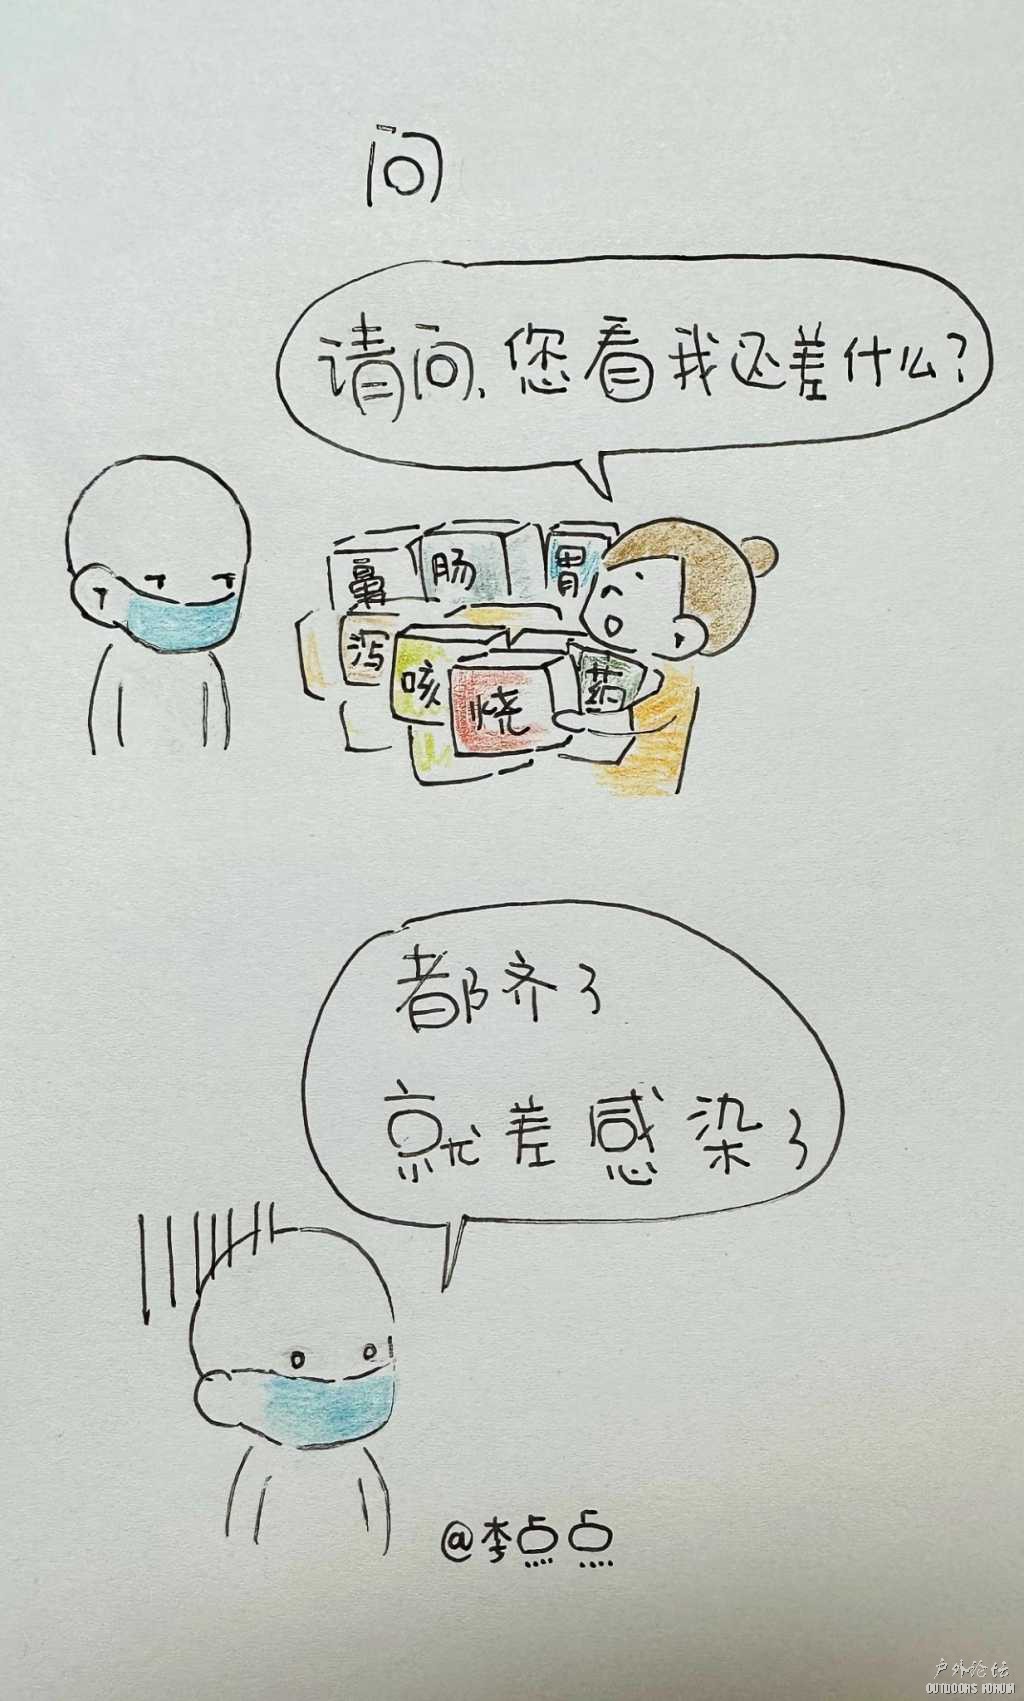 问
请问,您看我还差什么?
鼻
肠
胃
泻
咳
烧
药
都齐了
就差感染了
@李点点
户外论坛
OUTDOORS FORUM